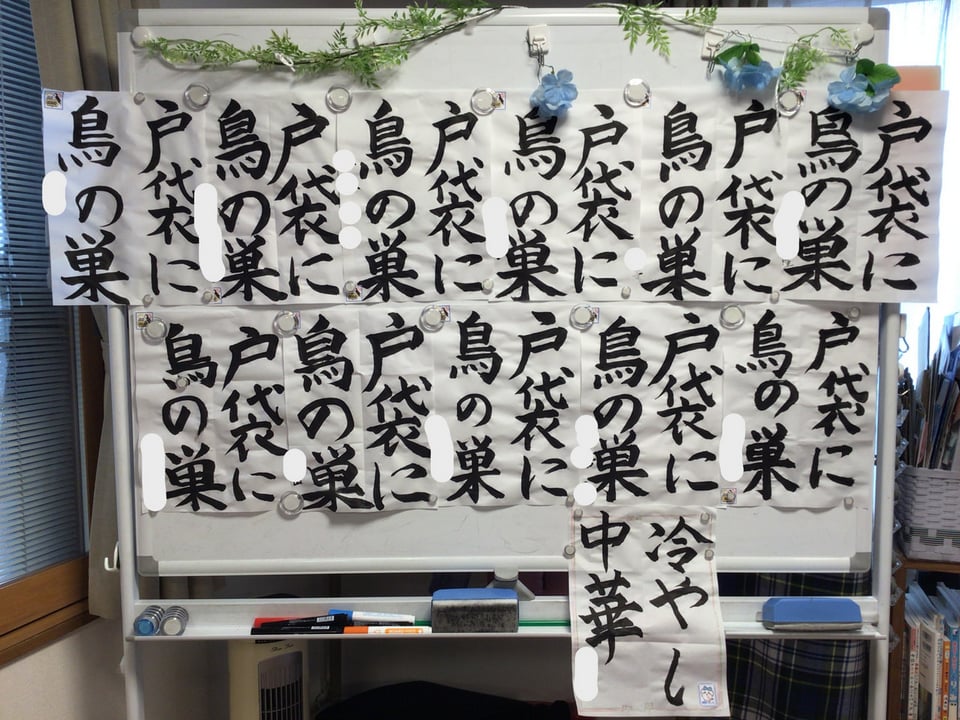 戸袋に
鳥の巣
戸袋に
鳥の巣
戸袋に
鳥の巣
戸袋に
鳥の巣
戸袋に
鳥の巣
戸袋に
鳥の巣
戸袋に
鳥の巣
戸袋に
鳥の巣
戸袋に
鳥の巣
戸袋に
鳥の巣
戸袋に
鳥の巣
冷やし
中華